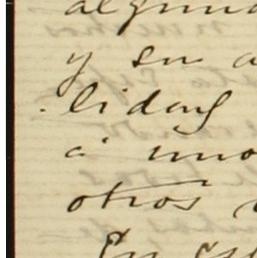 alguna
y su a
lidad
á uno
otros
En es